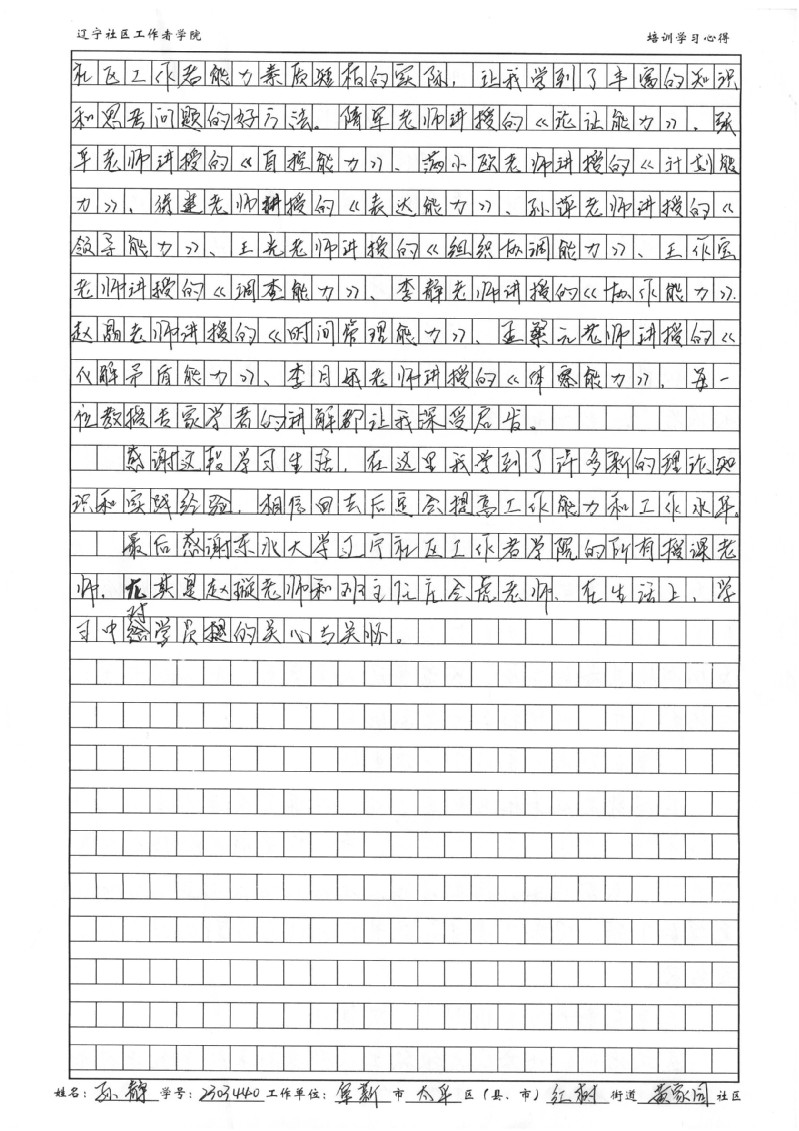 辽宁社区工作者学院 培训学习心得
社区工作者能力素质短板的实际，让我学到了丰富的知识
和思考问题的好方法。隋军老师讲授的《论证能力》、张
军老师讲授的《自控能力》、满小欧老师讲授的《计划能
力》、徐建老师讲授的《表达能力》、孙萍老师讲授的《
领导能力》、王老师讲授的《组织协调能力》、王作宝
老师讲授的《调查能力》、李静老师讲授的《协作能力》.
赵晶老师讲授的《时间管理能力》、孟元老师讲授的《
化解矛盾能力》、李月娥老师讲授的《体察能力》，每一
位教授专家学者的讲解都让我深受启发。
感谢这段学习生活，在这里我学到了许多新的理论知
识和实践经验，相信回去后定会提高工作能力和工作水平。
最后感谢东北大学辽宁社区工作者学院的所有授课老
师，尤其是赵璇老师和班主任老师，在生活上、学
习中对学员的关心与关怀。
姓名：孙静 学号：2303440 工作单位：阜新 市 太平 区（县、市）红树 街道 黄家园 社区